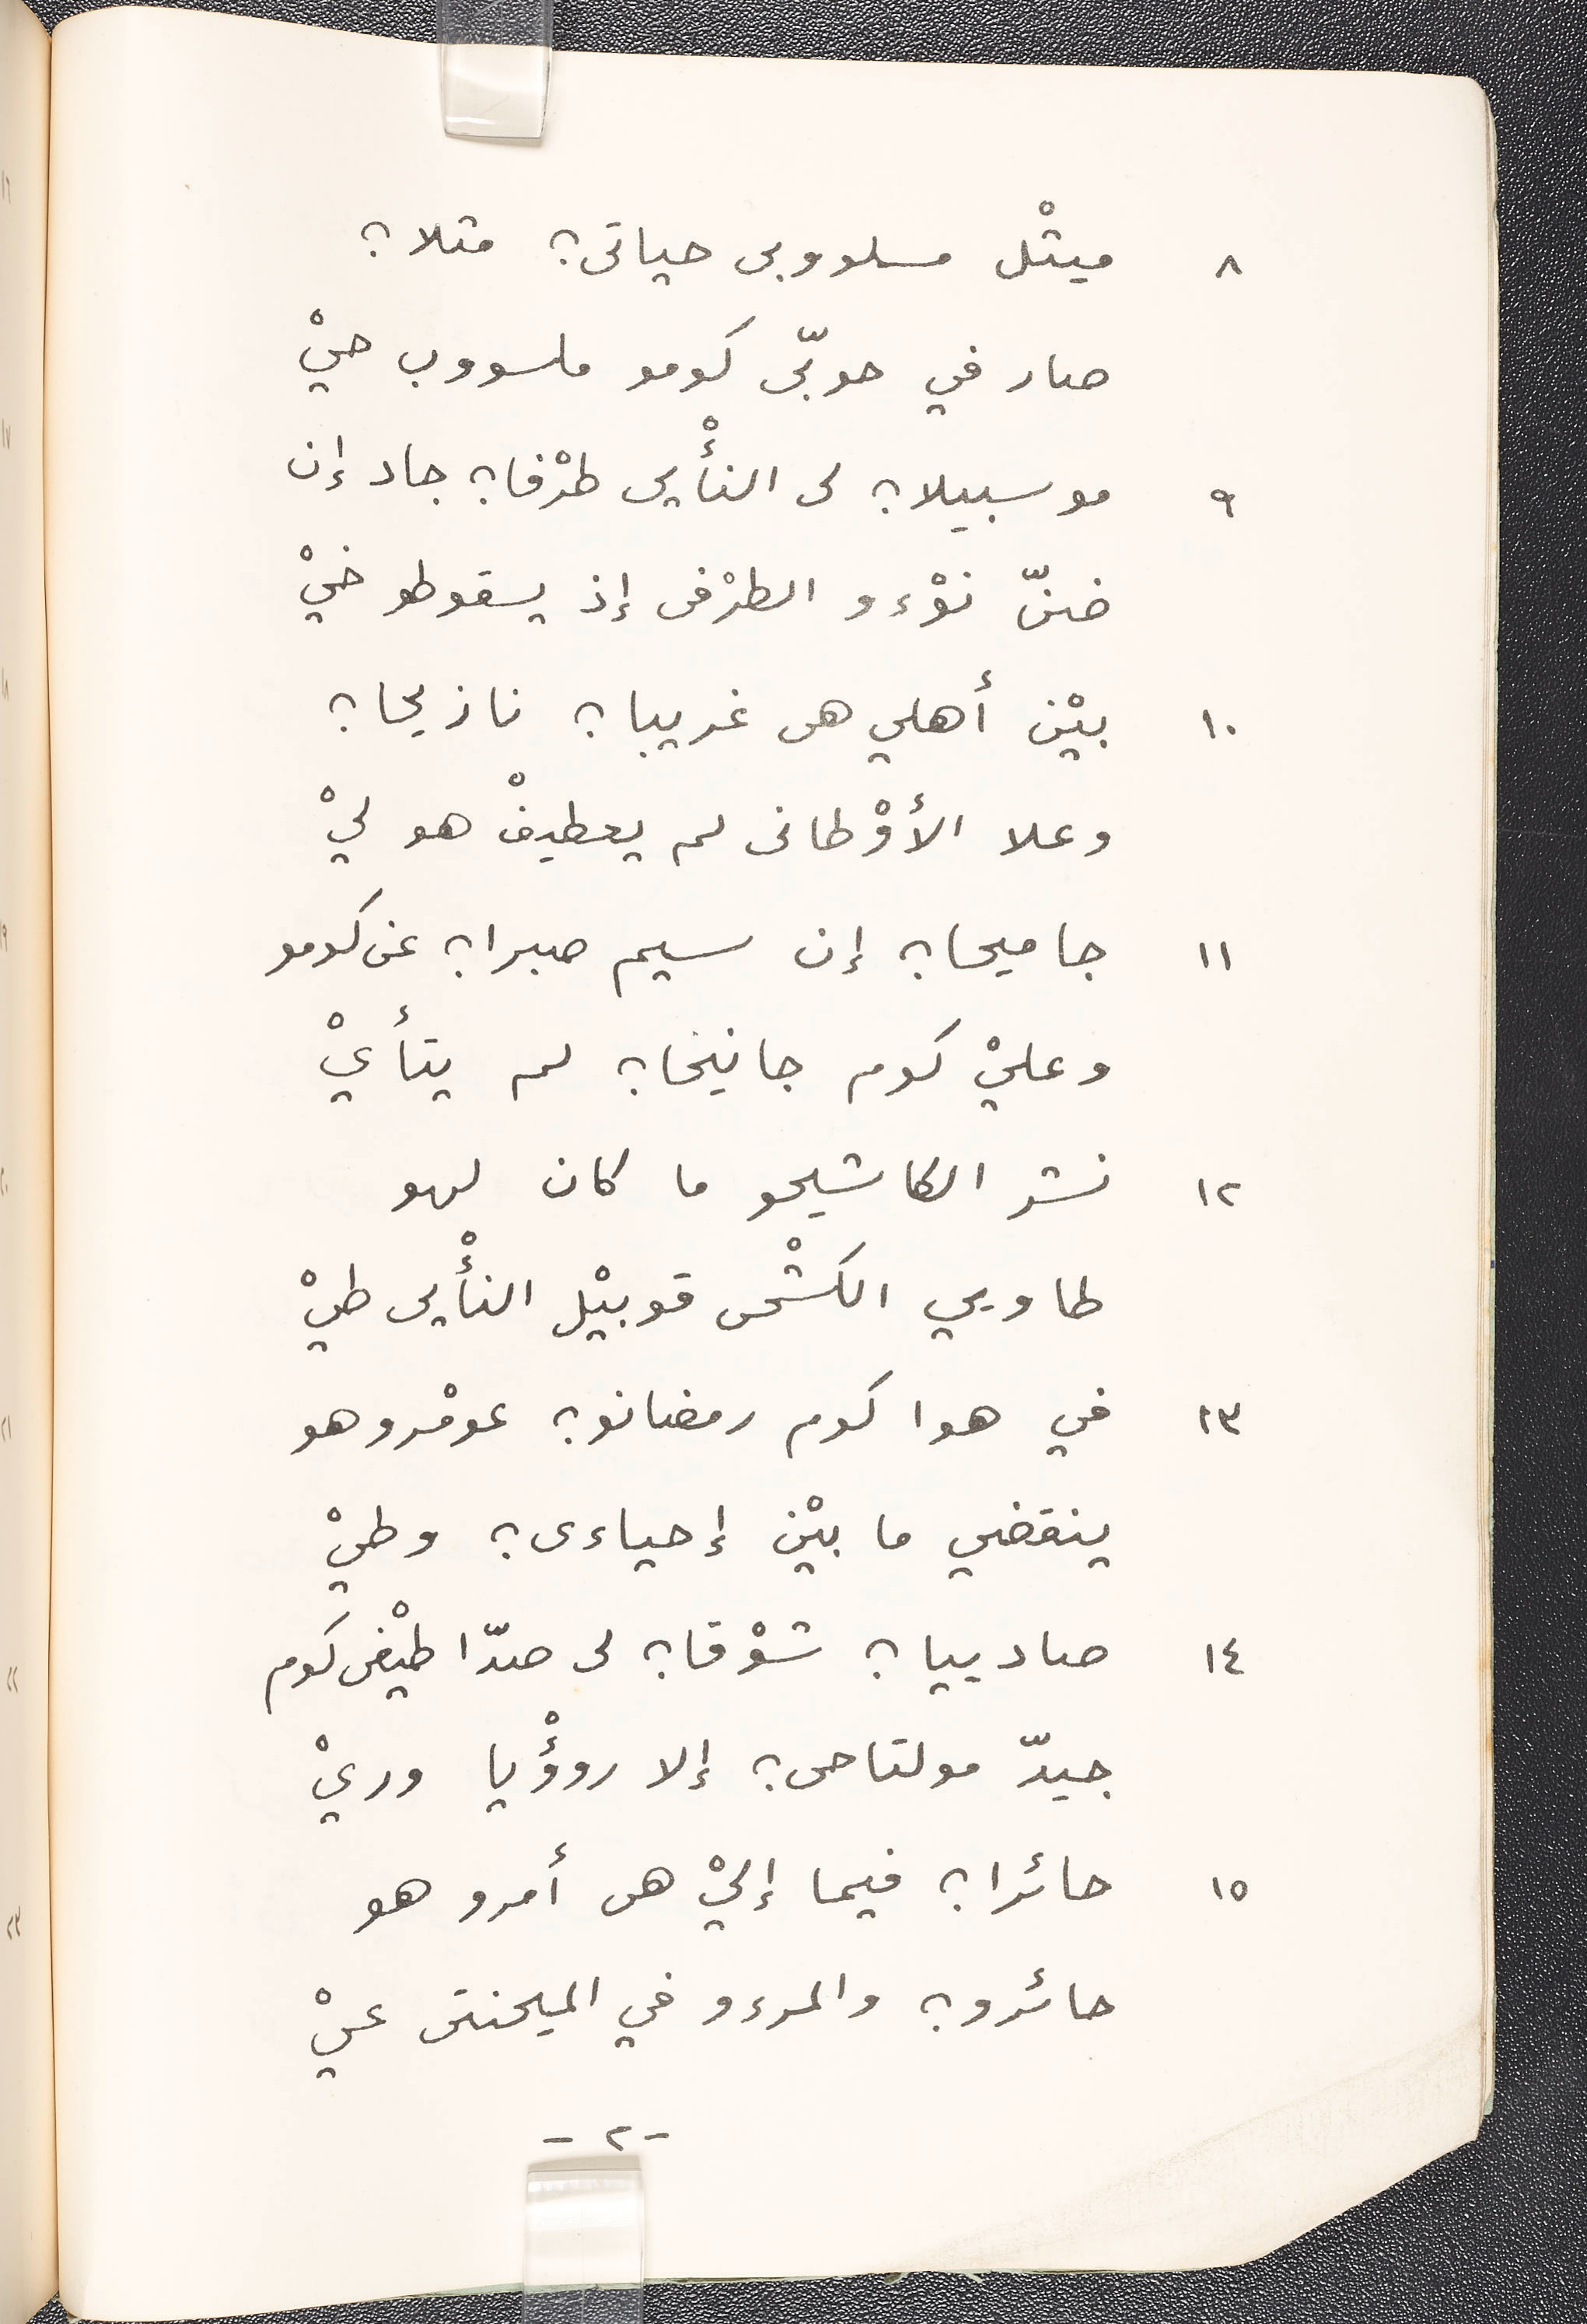 ٨ ميثْل مسلووبى حياتى؟ مثلا؟
صار في حوبّى كومو ملسووب حيْ
٩ موسبيلا؟ لى النأْيى طرْفا؟ جاد إن
ضنّ نوْءو الطرْفى إذ يسقوطو خيْ
١٠ بيْن أهلي هى غريبا؟ نازيحا؟
وعلا الأوْطانى لم يعطيفْ هو ليْ
١١ جاميحا؟ إن سيم صبرا؟ عن كومو
وعليْ كوم جانيحا؟ لم يتأيْ
١٢ نشر الكاشيحو ما كان لهو
طاويي الكشْحى قوبيْل النأْيى طيْ
١٣ في هوا كوم رمضانو؟ عومْروهو
ينقضي ما بيْن إحياءى؟ وطيْ
١٤ صادييا؟ شوْقا؟ لى صدّا طيْفى كوم
جيدّ مولتاحى؟ إلا روؤْيا وريْ
١٥ حائرا؟ فيما إليْ هى أمرو هو
حائرو؟ والمرءو في الميحنتى عيْ
-٢-